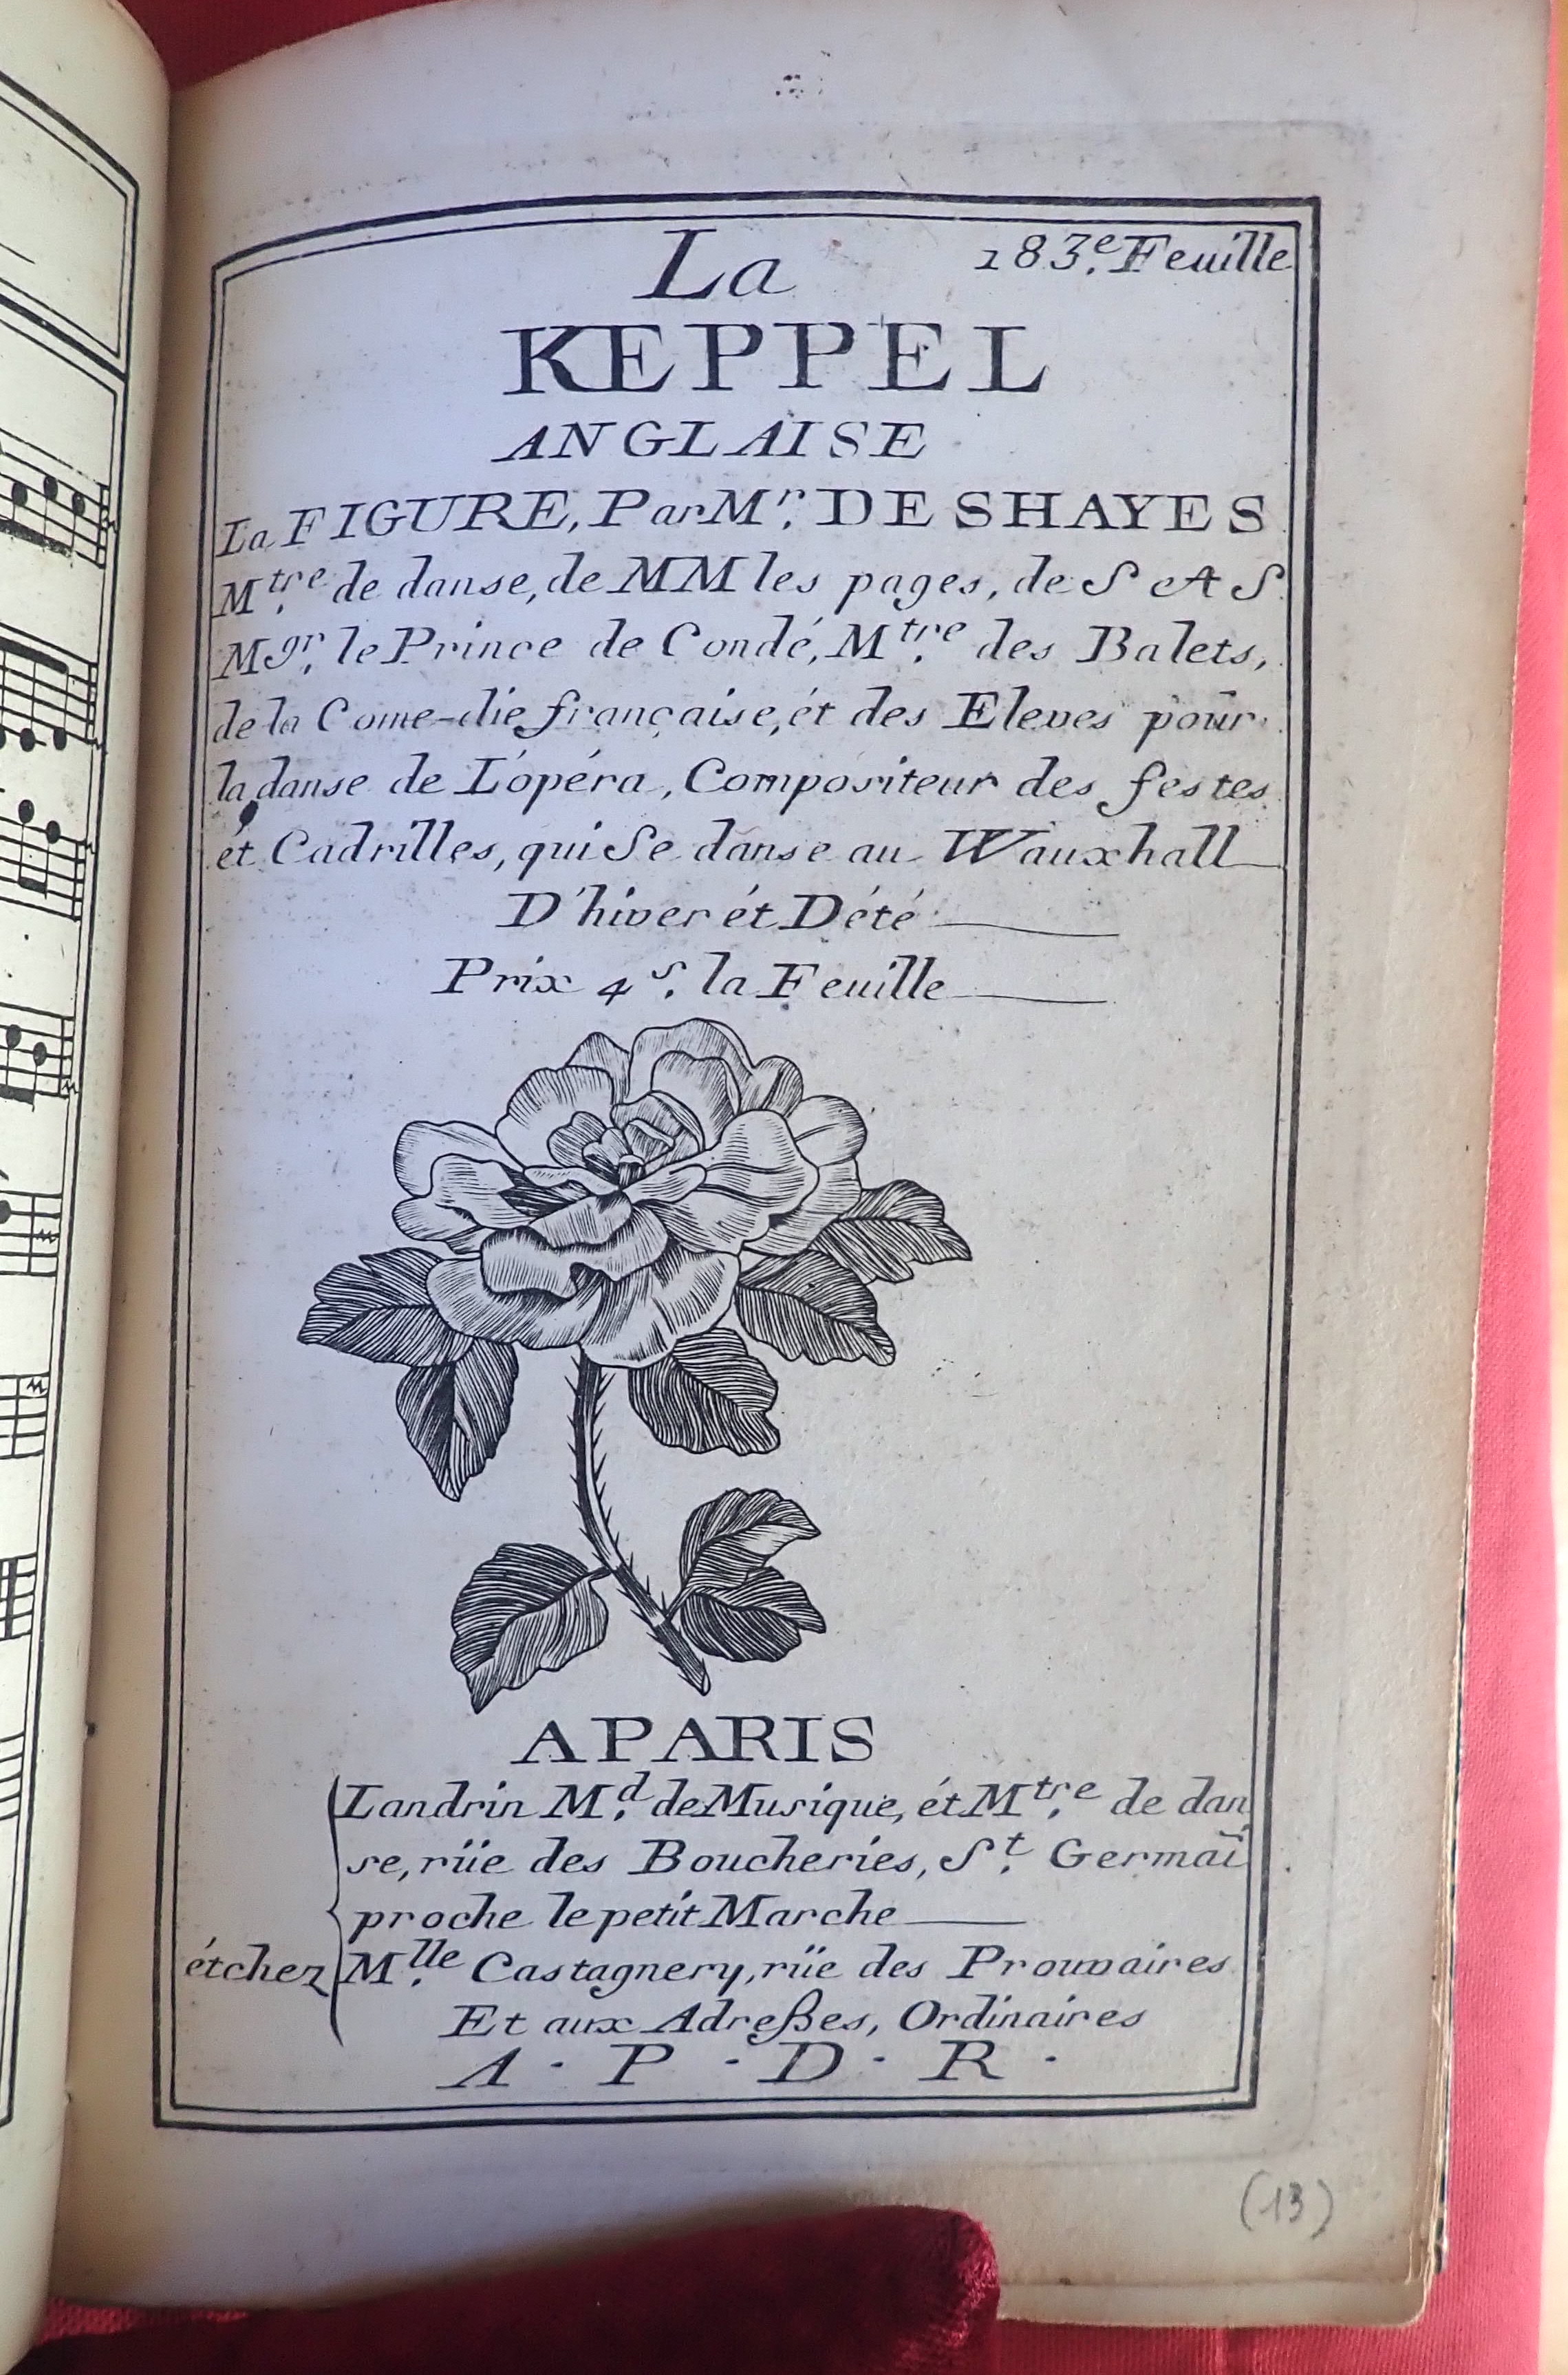 183.e Feuille
La
KEPPEL
ANGLAISE
La FIGURE, Par Mr. DESHAYES
Mtre. de danse, de MM les pages, de S A S.
Mgr. le Prince de Condé, Mtre. des Balets,
de la Come-die française, ét des Eleves pour
la danse de L'opéra, Compositeur des festes
ét Cadrilles, qui Se danse au Wauxhall
D'hiver ét D'été
Prix 4 s. la Feuille
A PARIS
Landrin Md. de Musique, ét Mtre. de dan
se, rüe des Boucheries, St. Germaĩ
proche le petit Marche
ét chez Mlle. Castagnery, rüe des Prouvaires
Et aux Adreßes, Ordinaires
A · P · D · R ·
(13)